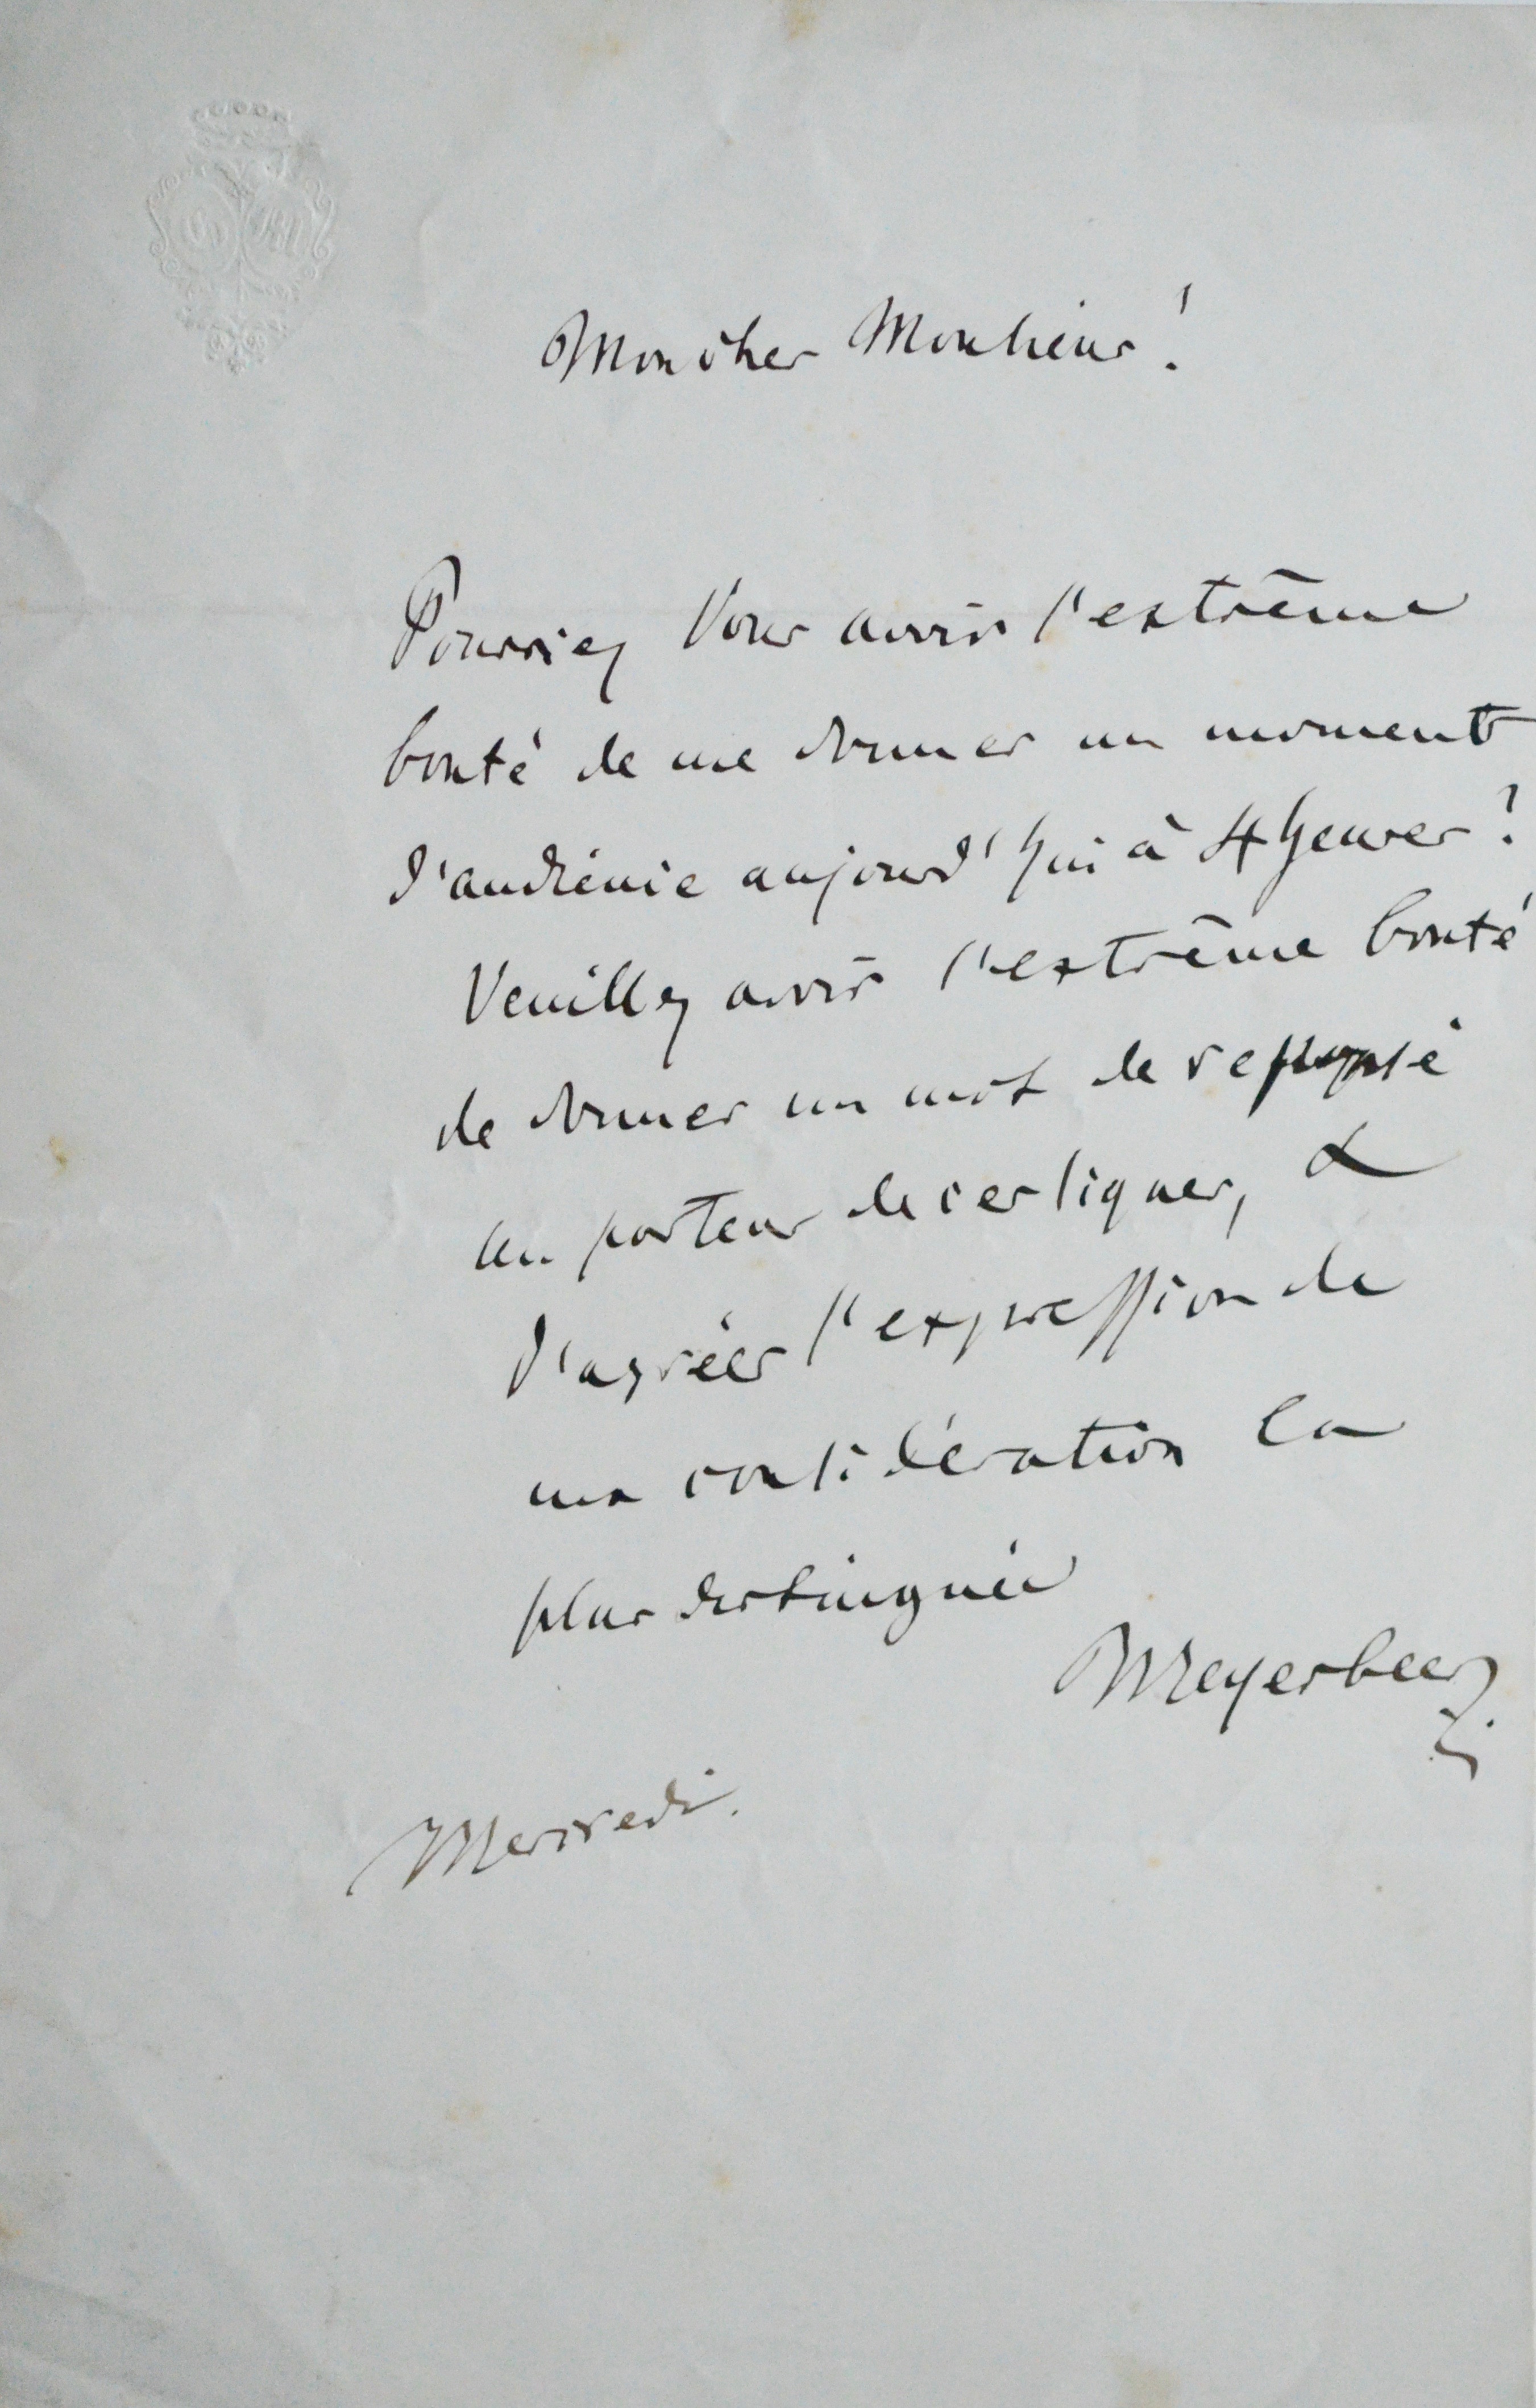 Mon cher Monsieur!
Pourriez Vous avoir l'extrême
bonté de me donner un moment
d'audience aujourd'hui à 4 heures?
Veuillez avoir l'extrême bonté
de donner un mot de reponse
au porteur de ces lignes, &
d'agréer l'expression de
ma considération la
plus distinguée
Meyerbeer.
Mercredi.